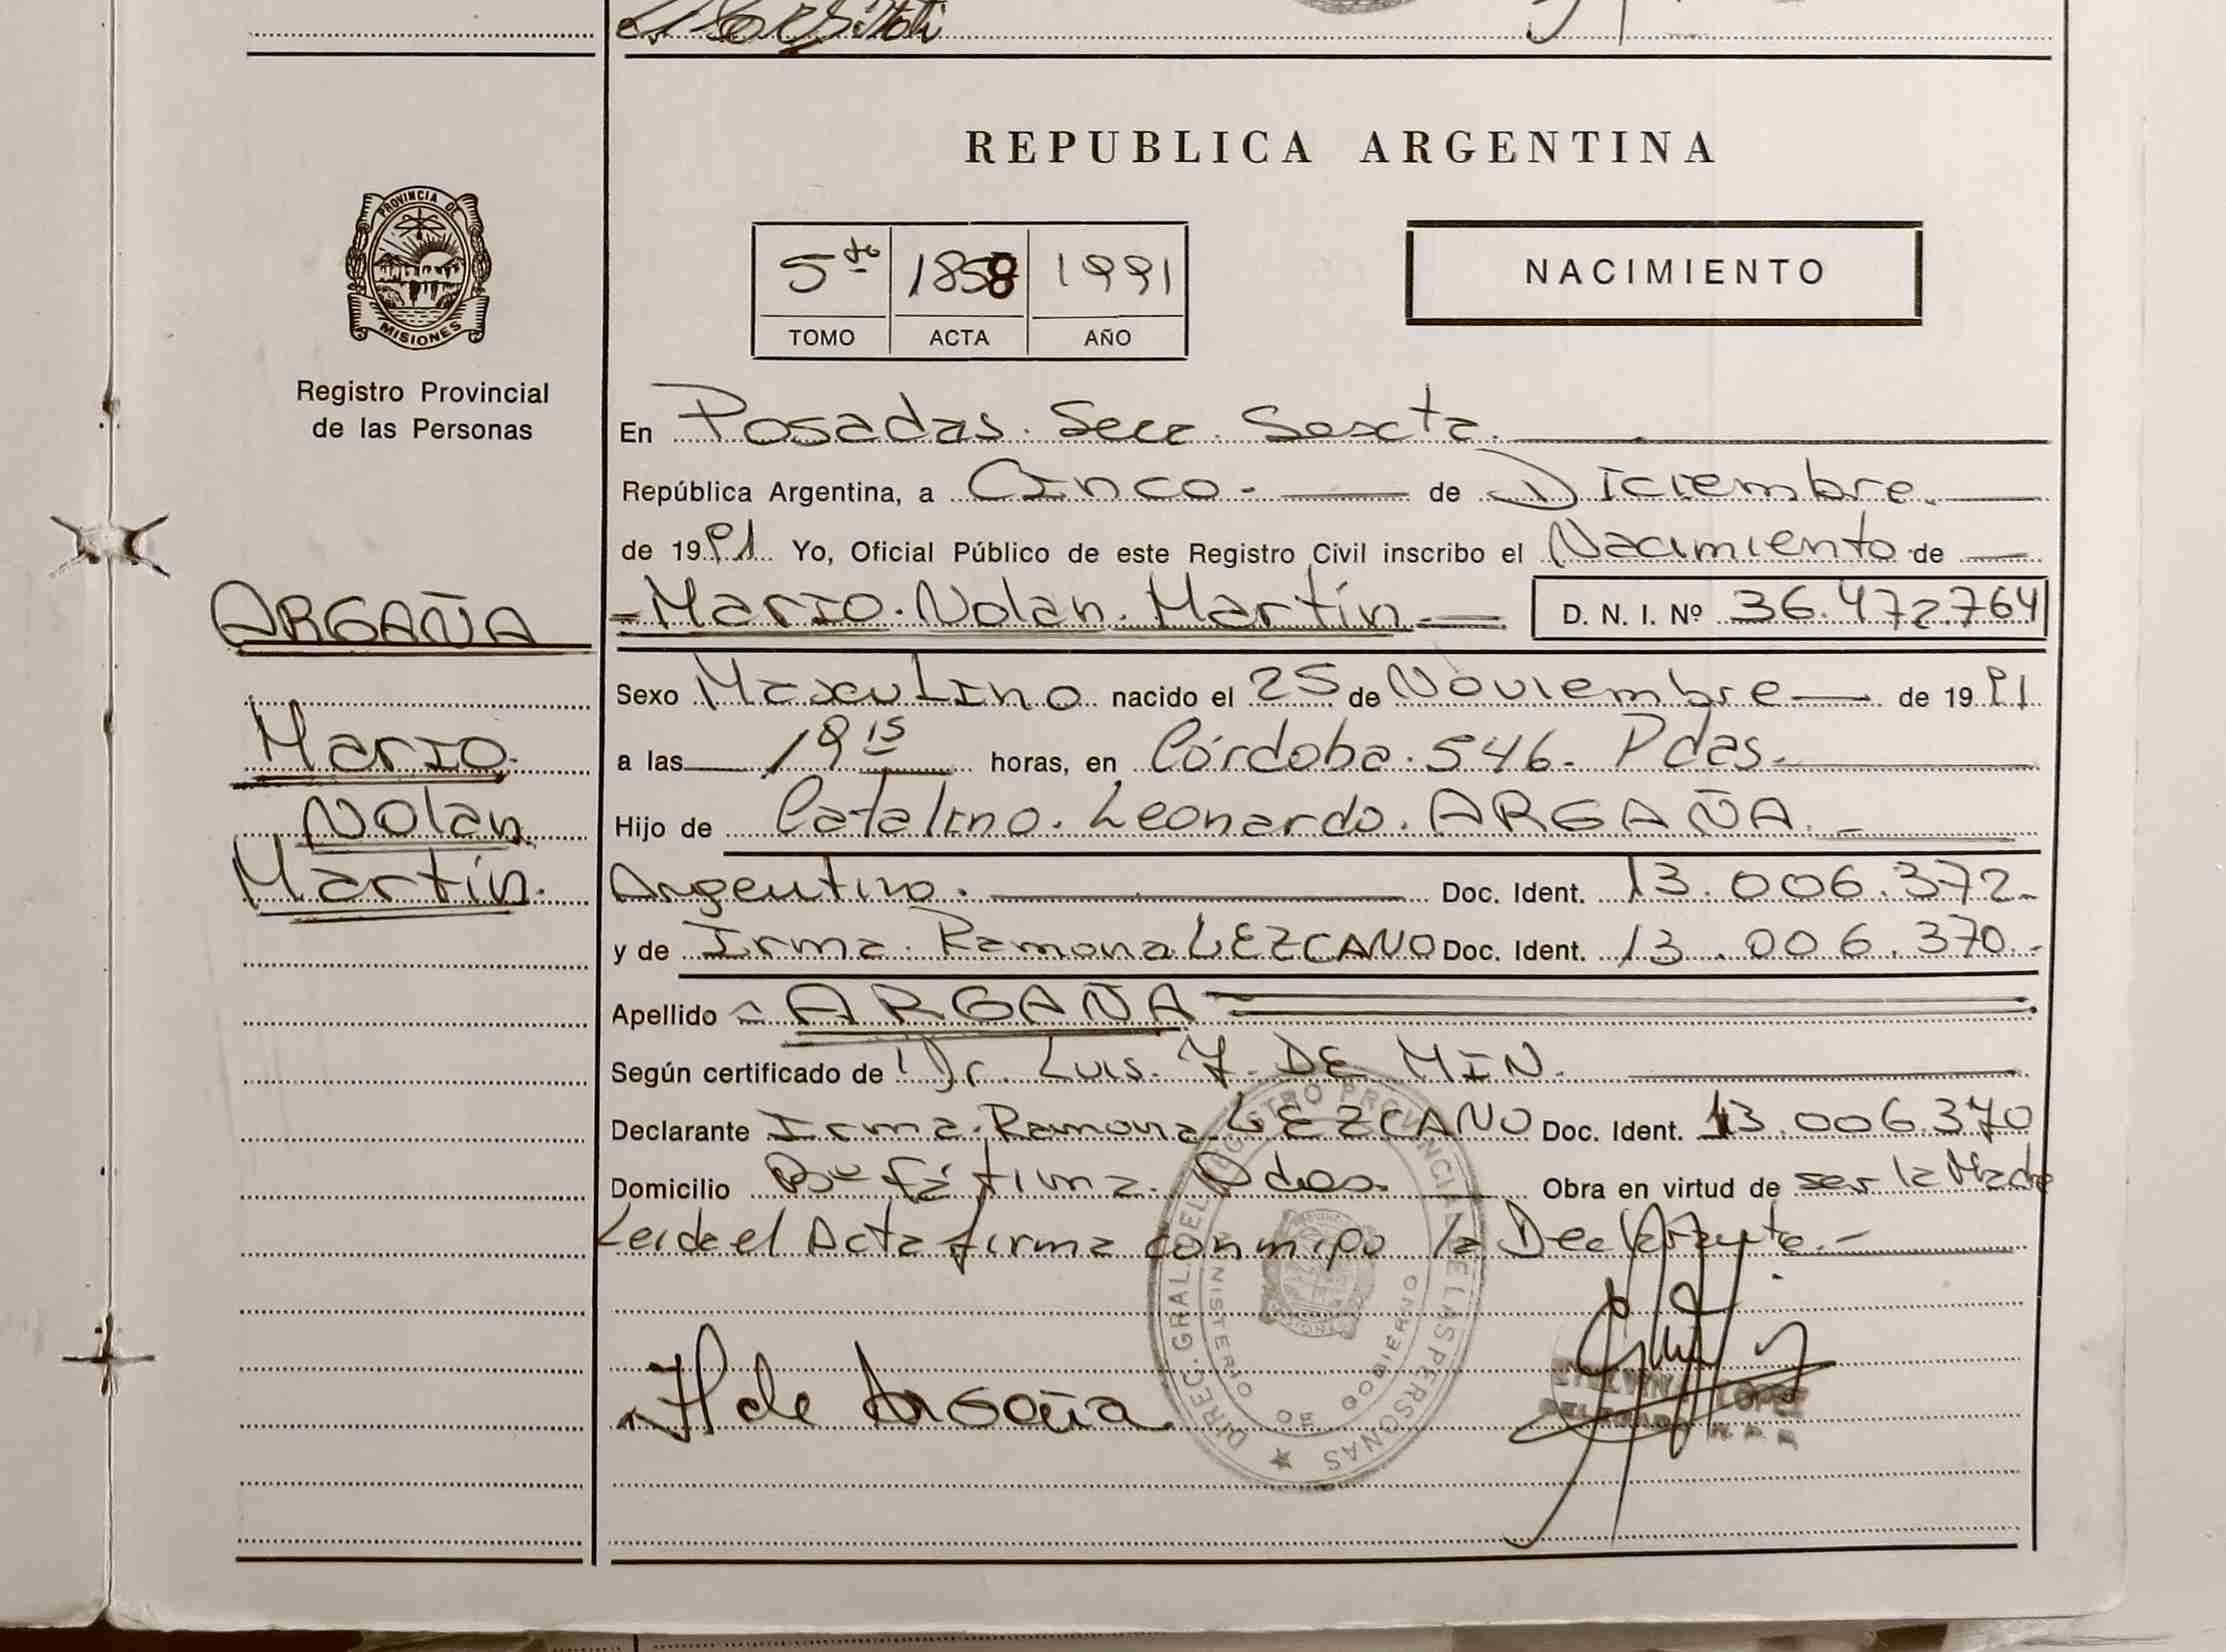 REPUBLICA ARGENTINA
PROVINCIA DE
MISIONES
Registro Provincial
de las Personas
5to 1858 1991
TOMO ACTA AÑO
NACIMIENTO
En Posadas. Secc. Sexta.
República Argentina, a Cinco. de Diciembre.
de 1991 Yo, Oficial Público de este Registro Civil inscribo el Nacimiento de
ARGAÑA
Mario
Nolan
Martín.
Mario. Nolan. Martín D. N. I. Nº 36.472.764
Sexo Masculino nacido el 25 de Noviembre de 1991
a las 19 15 horas, en Córdoba. 546. Pdas.
Hijo de Catalino. Leonardo. ARGAÑA.
Argentino. Doc. Ident. 13.006.372
y de Irma. Ramona LEZCANO Doc. Ident. 13.006.370.
Apellido ARGAÑA
Según certificado de Dr. Luis. J. DE MIN.
Declarante Irma. Ramona LEZCANO Doc. Ident. 13.006.370
Domicilio Bº Fátima. Pdas. Obra en virtud de ser la Madre
Leida el Acta firma conmigo la Declarante.
DIREC. GRAL. DEL REGISTRO PROVINCIAL DE LAS PERSONAS
MINISTERIO DE GOBIERNO
de Argaña
LOPEZ